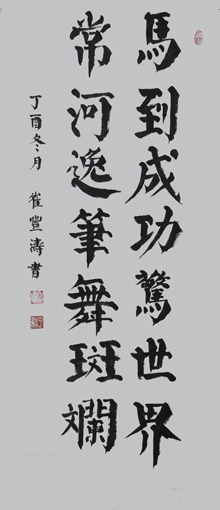 馬到成功驚世界
常河逸筆舞斑斕
丁酉冬月 崔豈濤書